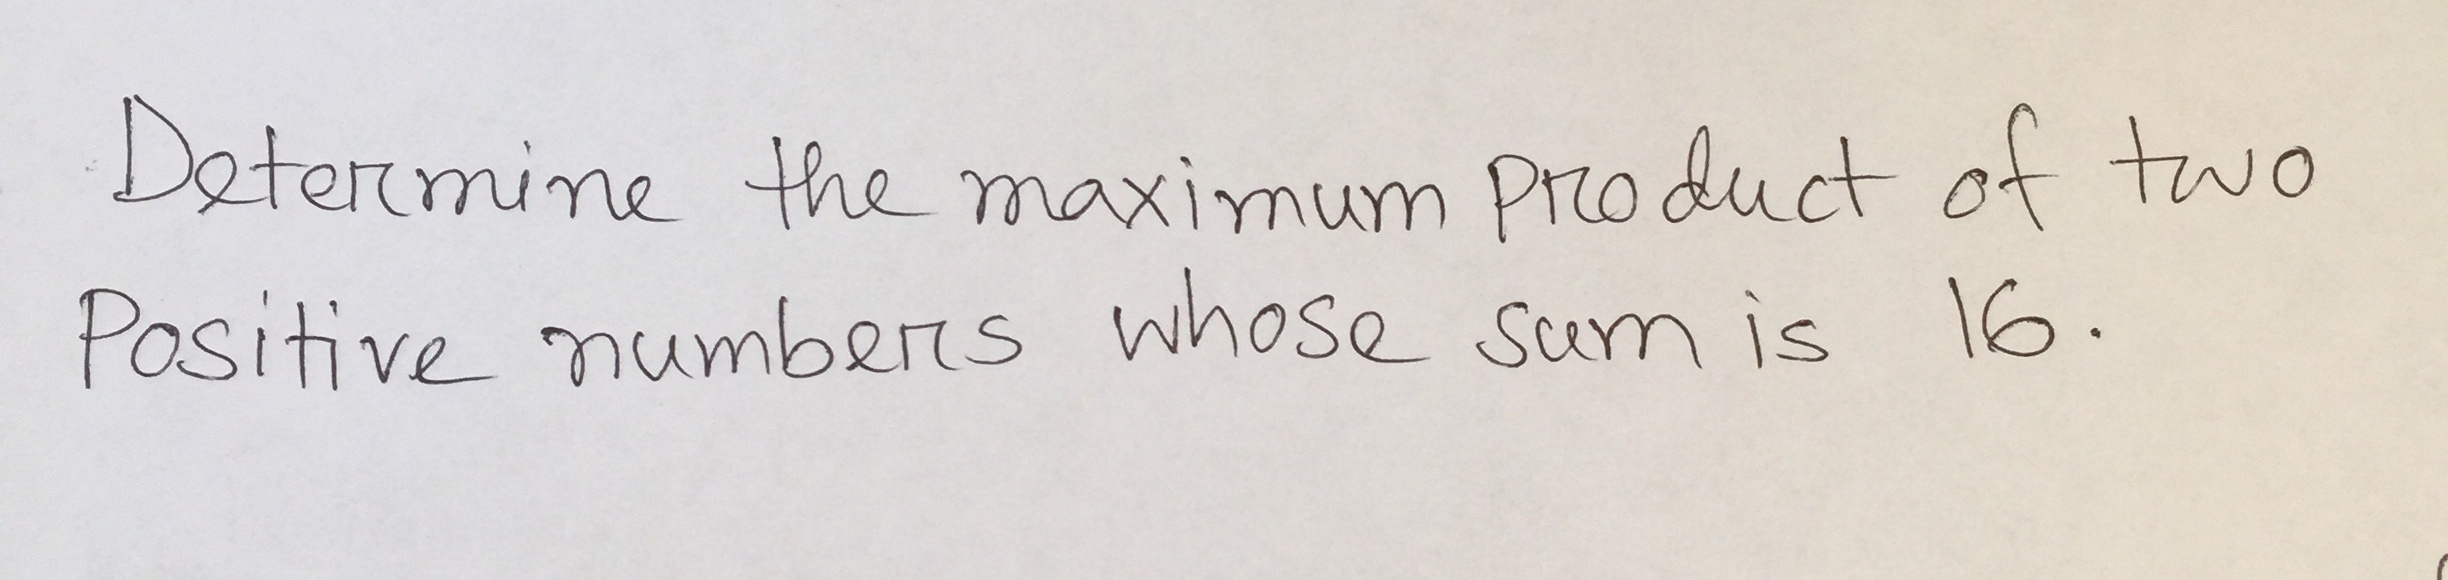 Determine the maximum product of two
Positive numbers whose sum is 16.